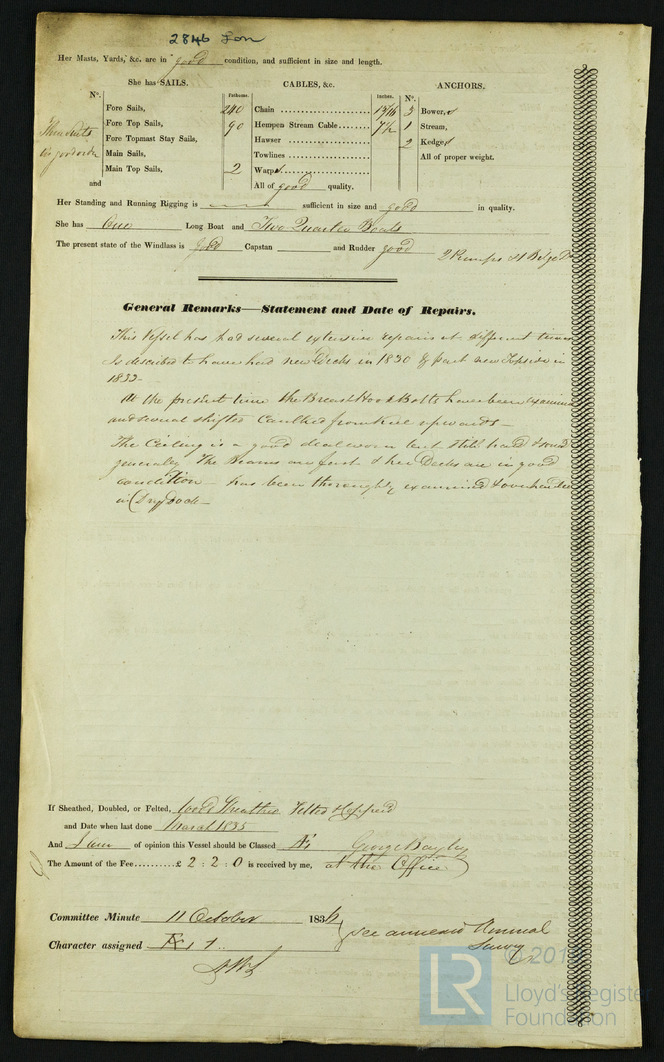 2846 Lon
Her Masts, Yards, &c. are in good condition, and sufficient in size and length.
She has SAILS. CABLES, &c. ANCHORS.
No. Fathoms. Inches. No.
Fore Sails, 240 Chain 1 5/16 3 Bowers
Fore Top Sails, 90 Hempen Stream Cable 7 1/2 1 Stream,
Fore Topmast Stay Sails, Hawser 2 Kedges
Main Sails, Towlines All of proper weight.
Main Top Sails, 2 Warps
and All of good quality.
in good order
Her Standing and Running Rigging is sufficient in size and good in quality.
She has One Long Boat and Two Quarter Boats
The present state of the Windlass is good Capstan and Rudder good 2 Pumps
General Remarks—Statement and Date of Repairs.
This Vessel has had several extensive repairs at different times
Is described to have had new Decks in 1830 & part new Topside in
1833-
At the present time the Breast Hook Bolts have been examined
and several shifted Caulked from Keel upwards-
The Ceiling is a good deal worn but still hard & sound
generally The Beams are just & her Decks are in good
condition - has been thoroughly examined & overhauled
in Dry Dock-
If Sheathed, Doubled, or Felted, Wood Sheathed Felted & Coppered
and Date when last done March 1835
And I am of opinion this Vessel should be Classed George Bayley
The Amount of the Fee £ 2 : 2 : 0 is received by me, at the Office
Committee Minute 11 October 183
see annexed Annual
Survey
Character assigned
© 201
LR
Lloyd's Register
Foundation